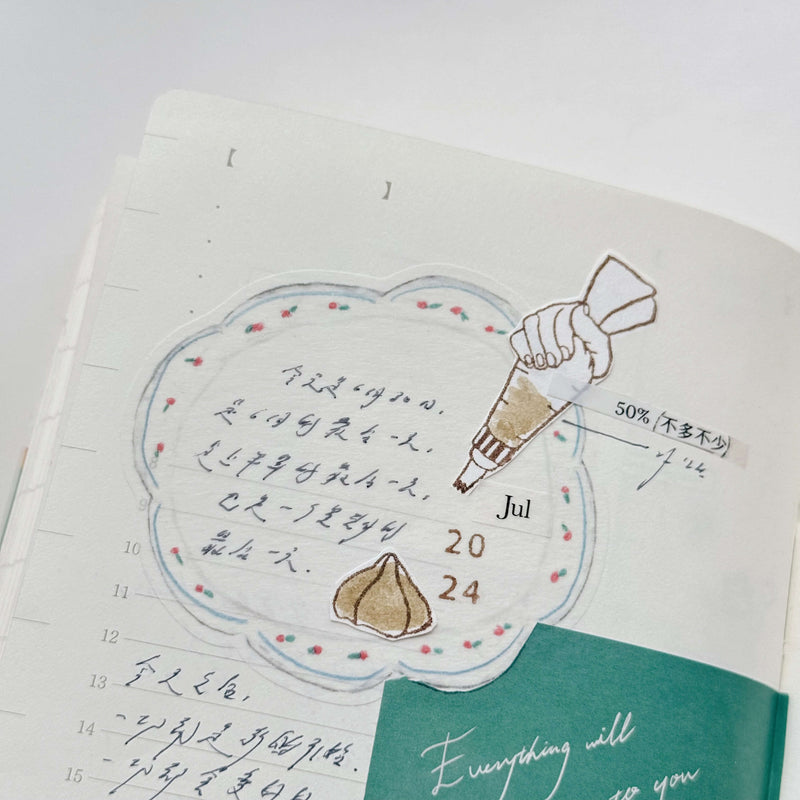 【 】
今天是6月30日,
是6月的最后一天,
是上半年的最后一天,
也是一个星期的
最后一天.
50% (不多不少)
Jul
20
24
9
10
11
12
13 今天之后,
14 一切都是新的开始.
15 一切都会变的
Everything will
to you